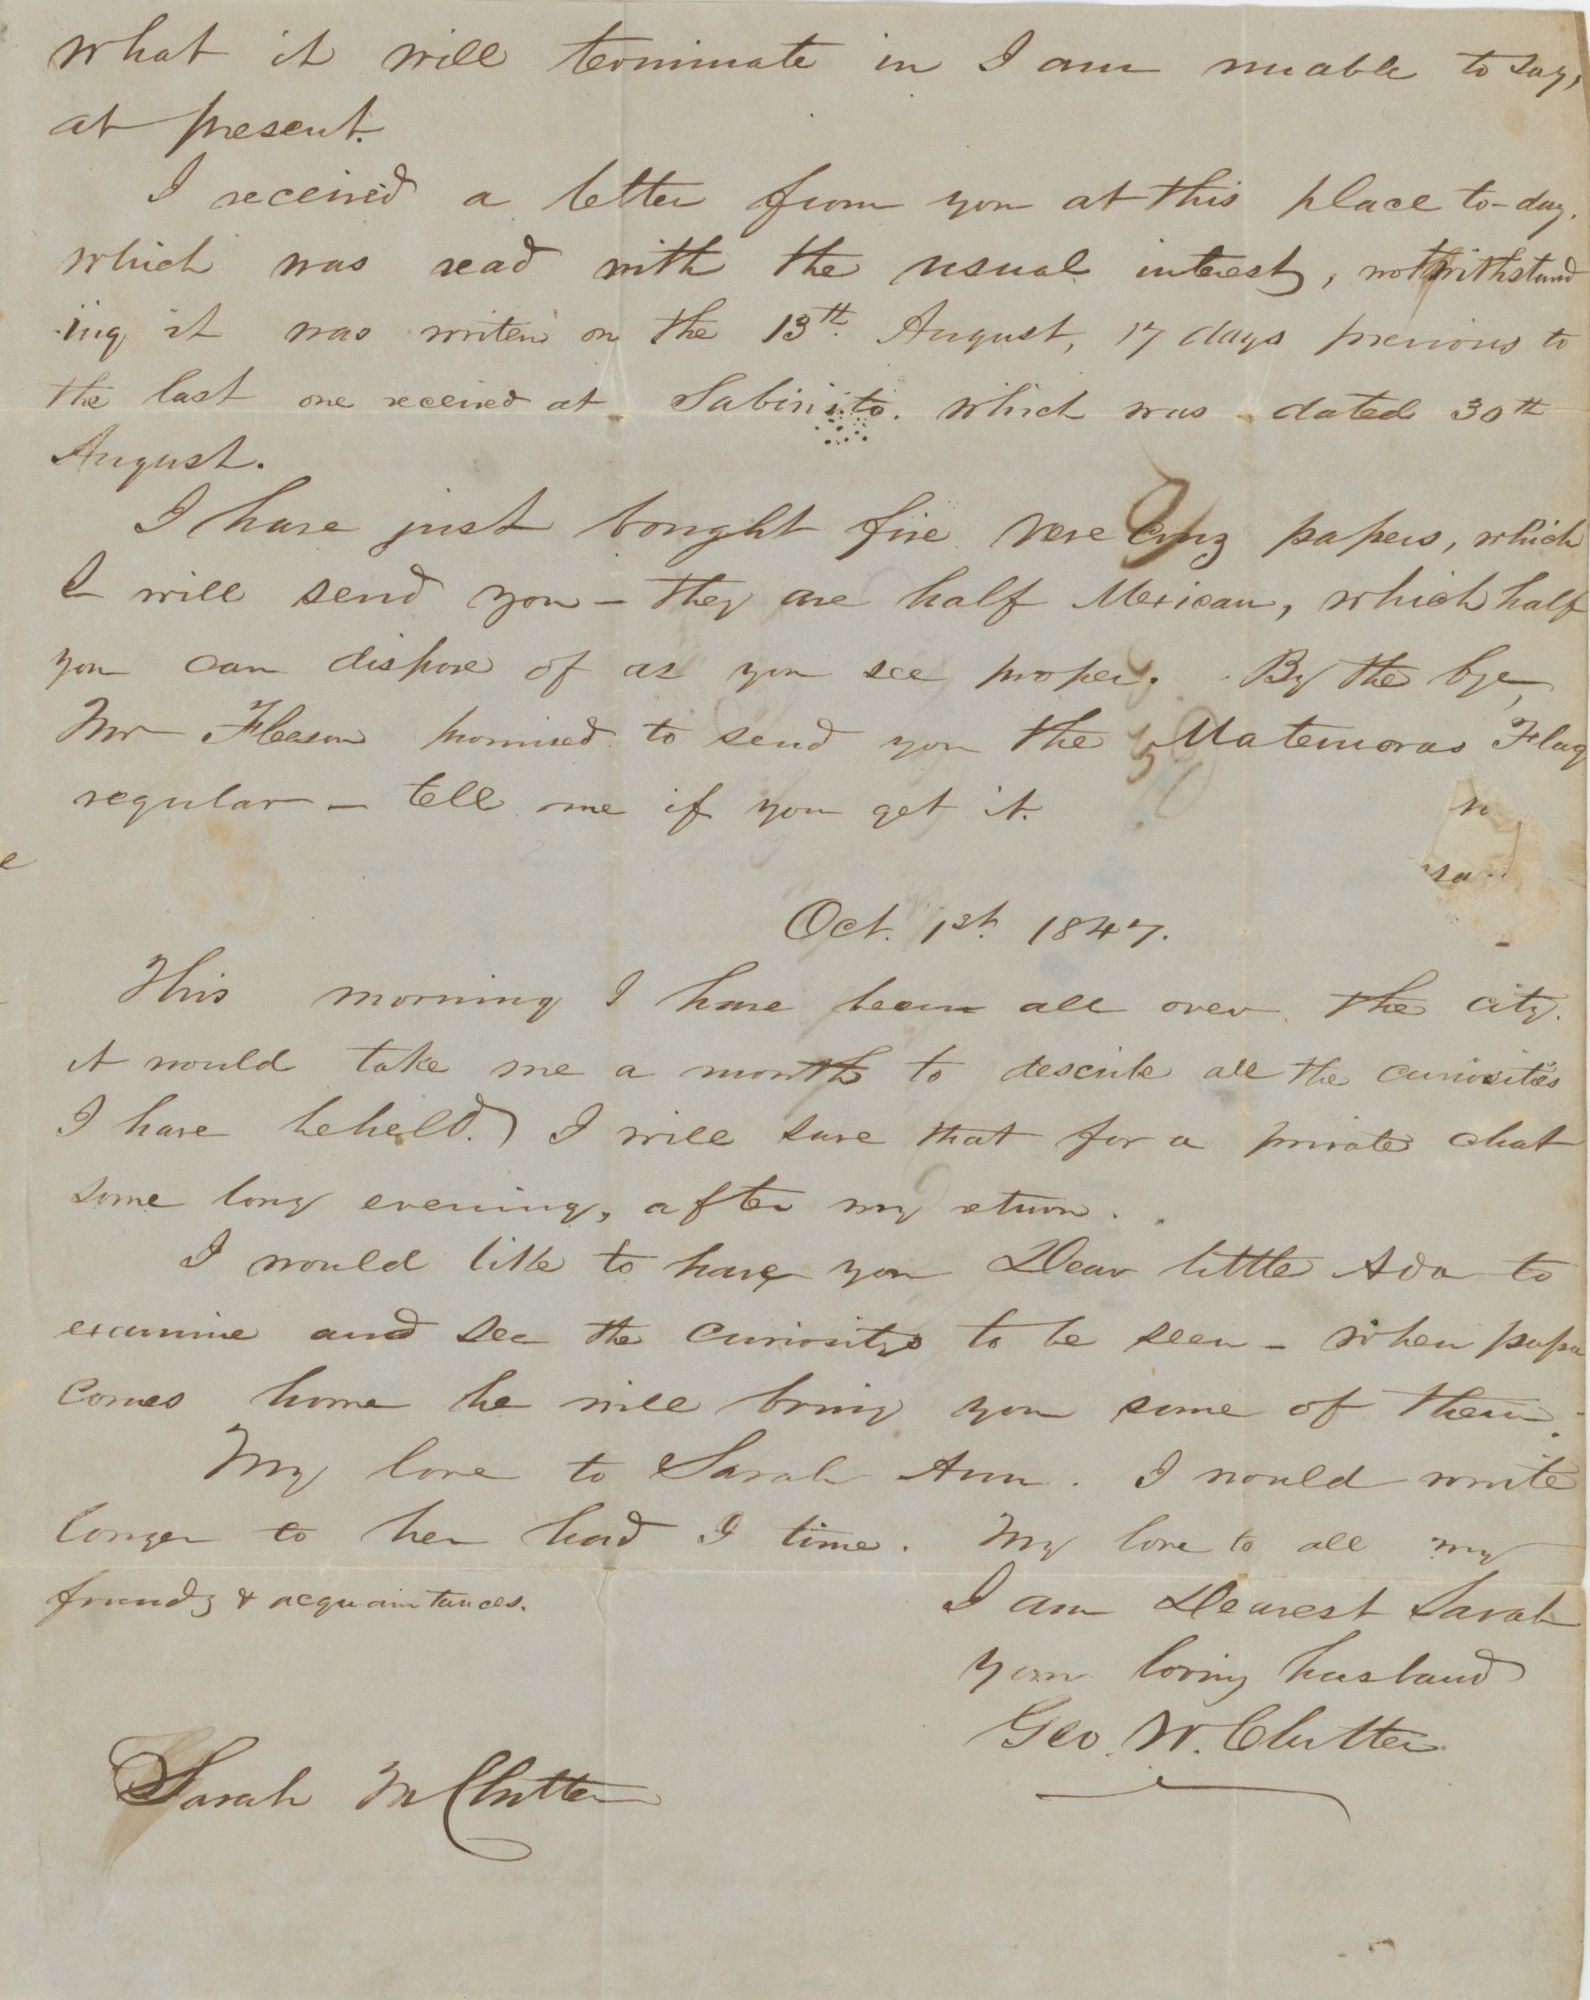 what it will terminate in I am unable to say,
at present.
I received a letter from you at this place to-day.
which was read with the usual interest, notwithstand
-ing it was writen on the 13th August, 17 days previous to
the last one received at Sabinito. which was dated 30th
August.
I have just bought five Vera Cruz papers, which
I will send you - they are half Mexican, which half
you can dispose of as you see proper. By the bye,
Mr promised to send you the Matemoras Flag
regular - tell me if you get it.
Oct. 1st. 1847.
This morning I have been all over the city.
it would take me a month to describe all the curiosities
I have beheld. I will save that for a private chat
some long evening, after my return.
I would like to have you Dear little Ada to
examine and see the curiositys to be seen - when papa
comes home he will bring you some of them.
My love to Sarah Ann. I would write
longer to her had I time. My love to all my
friends & acquaintances.
I am Dearest Sarah
your loving husband
Geo. W. Clutter
Sarah M Clutter